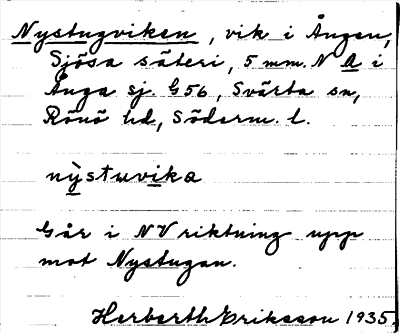 Nystugviken, vik i Ången,
Sjösa säteri, 5 mm. N A i
Ånga sj. G56, Svärta sn,
Rönö hd, Söderm. l.
nystuvika
Går i NV riktning upp
mot Nystugan.
Herberth Eriksson 1935.